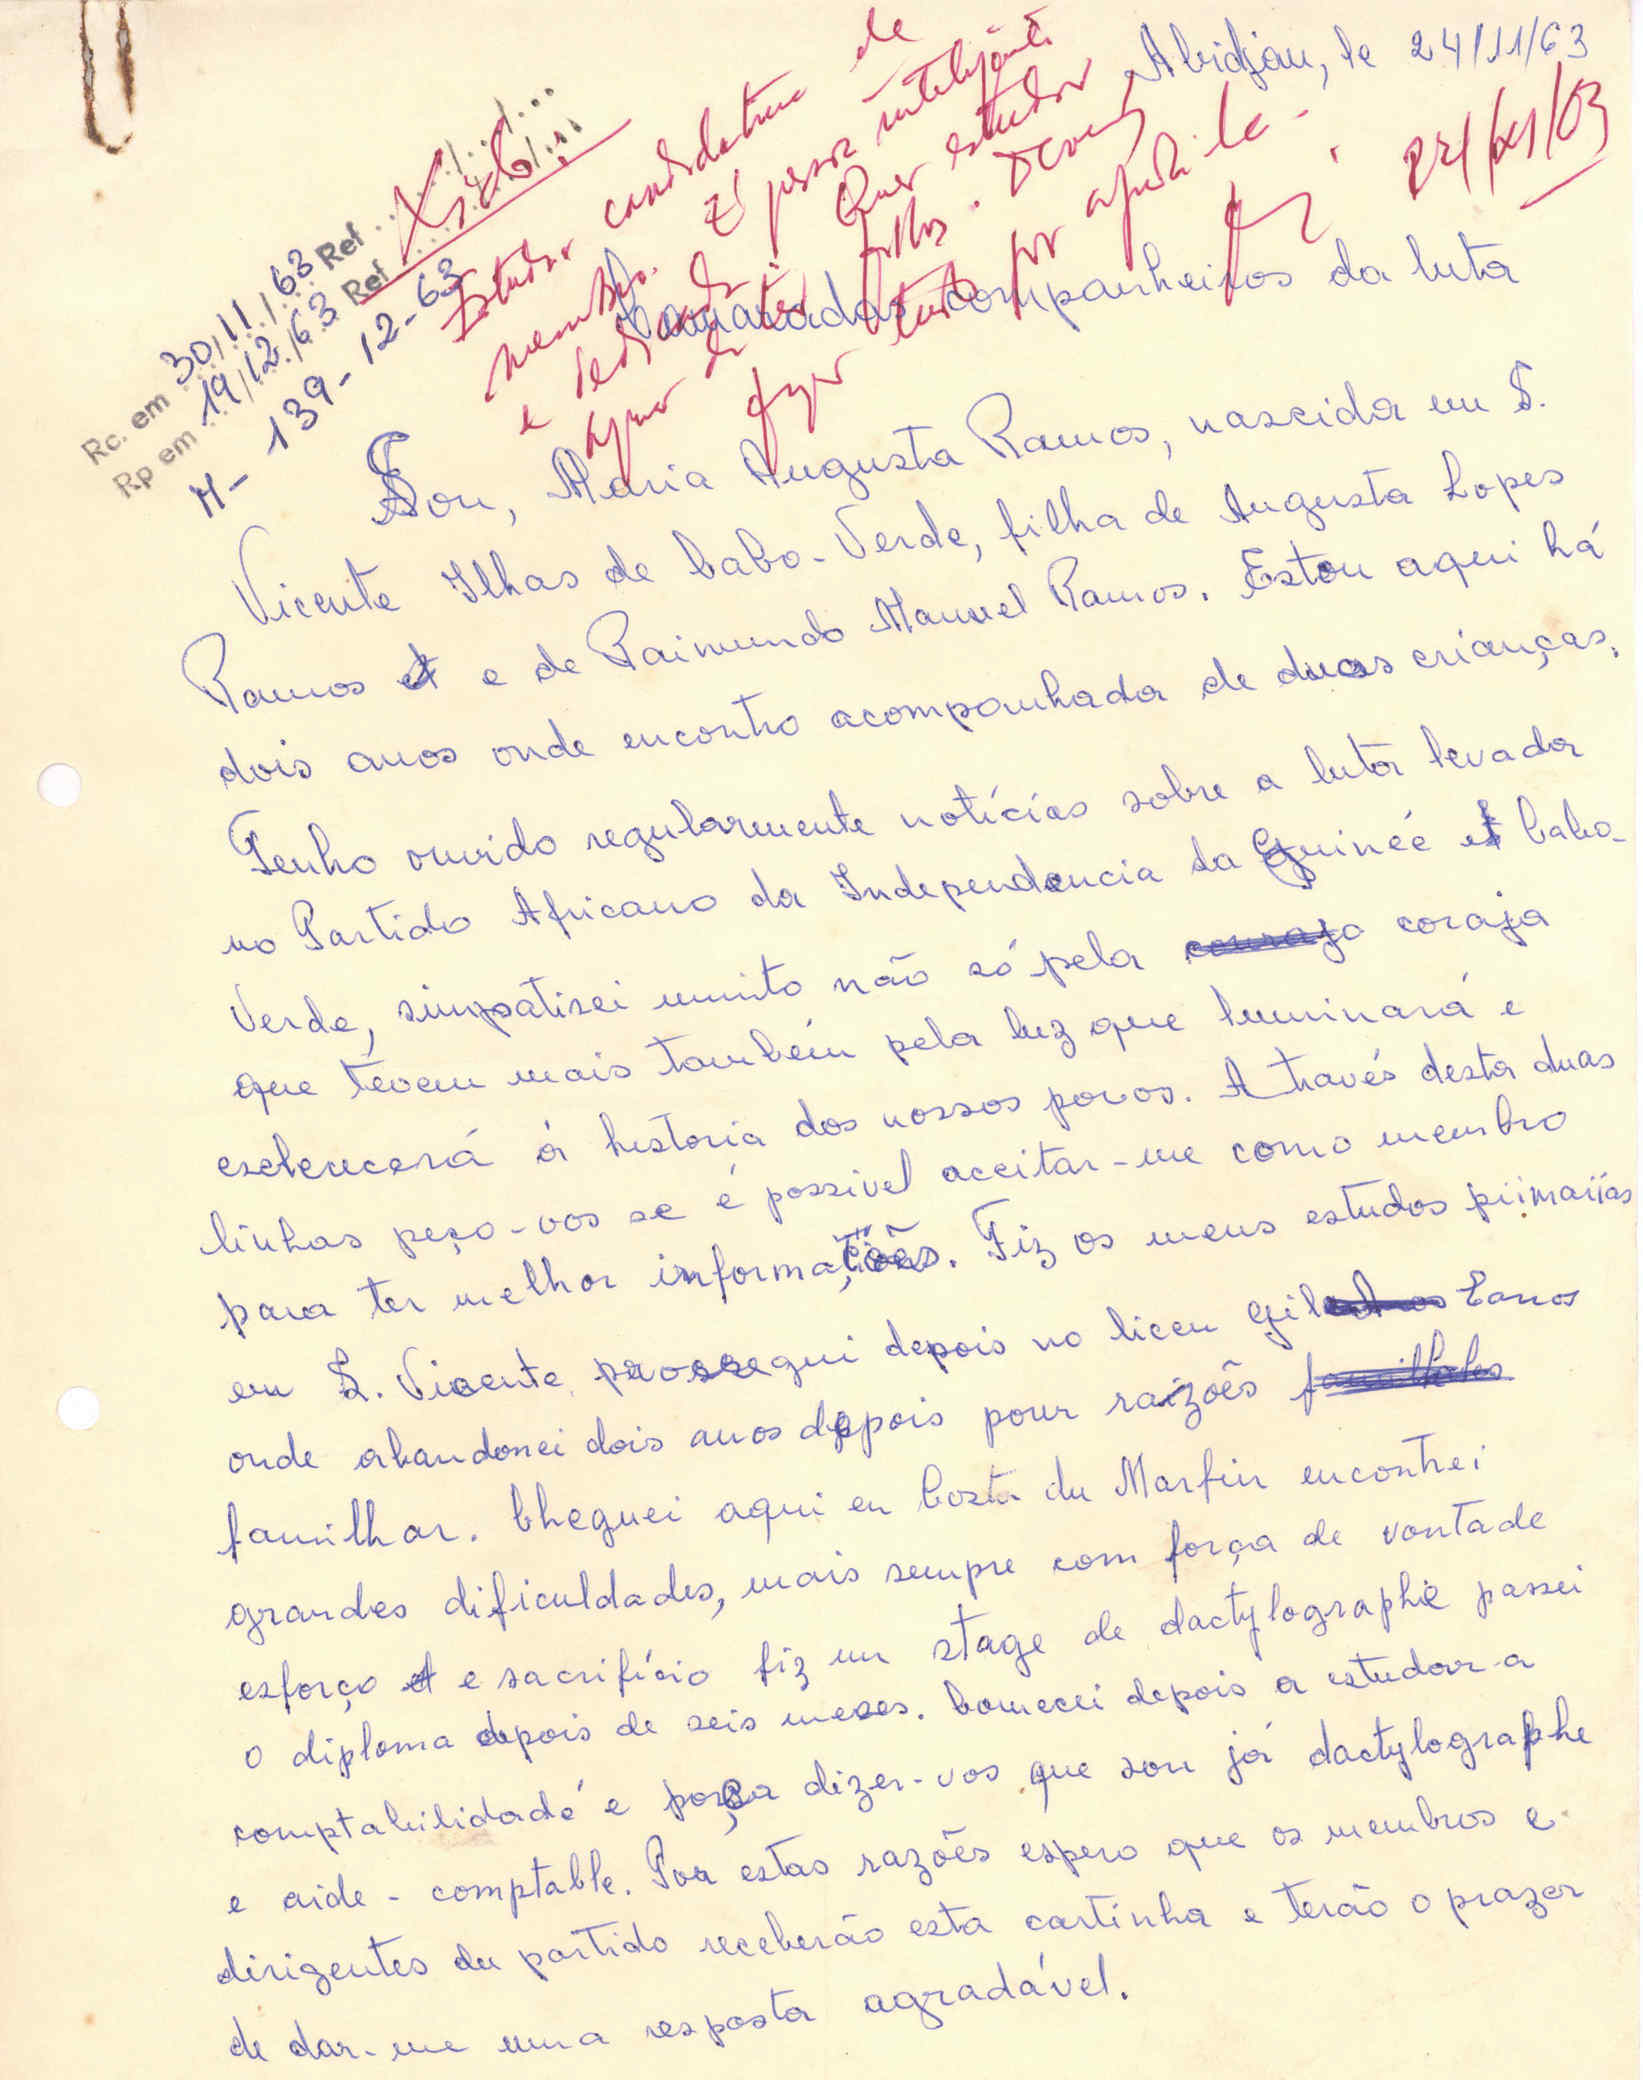 Abidjan, le 24/11/63
Rc. em 30/11/63 Ref
Rp em 19/12/63 Ref
M- 139-12-63
Estudar candidatura de
membro. É pessoa inteligente
e dedicada. Quer estudar
apesar de ter filhos. Devemos
fazer tudo por ajudá-la.
Camaradas companheiros da luta
Sou, Maria Augusta Ramos, nascida em S.
Vicente Ilhas de Cabo-Verde, filha de Augusta Lopes
Ramos e de Raimundo Manuel Ramos. Estou aqui há
dois anos onde encontro acompanhada de duas crianças.
Tenho ouvido regularmente notícias sobre a luta levada
no Partido Africano da Independencia da Guinée et Cabo-
Verde, simpatisei muito não só pela coraja
que tevem mais também pela luz que luminará e
esclerecerá á historia dos nossos povos. Através desta duas
linhas peço-vos se é possivel aceitar-me como membro
para ter melhor informações. Fiz os meus estudos primarias
em S. Vicente prossegui depois no liceu Gil Eanos
onde abandonei dois anos depois pour raizões
familhar. Cheguei aqui en Costa du Marfin encontrei
grandes dificuldades, mais sempre com força de vontade
esforço e sacrifício fiz un stage de dactylographie passei
o diploma depois de seis meses. Comecei depois a estudar a
comptabilidade e posça dizer-vos que sou já dactylographe
e aide-comptable. Por estas razões espero que os membros e
dirigentes du partido receberão esta cartinha e terão o prazer
de dar-me uma resposta agradável.